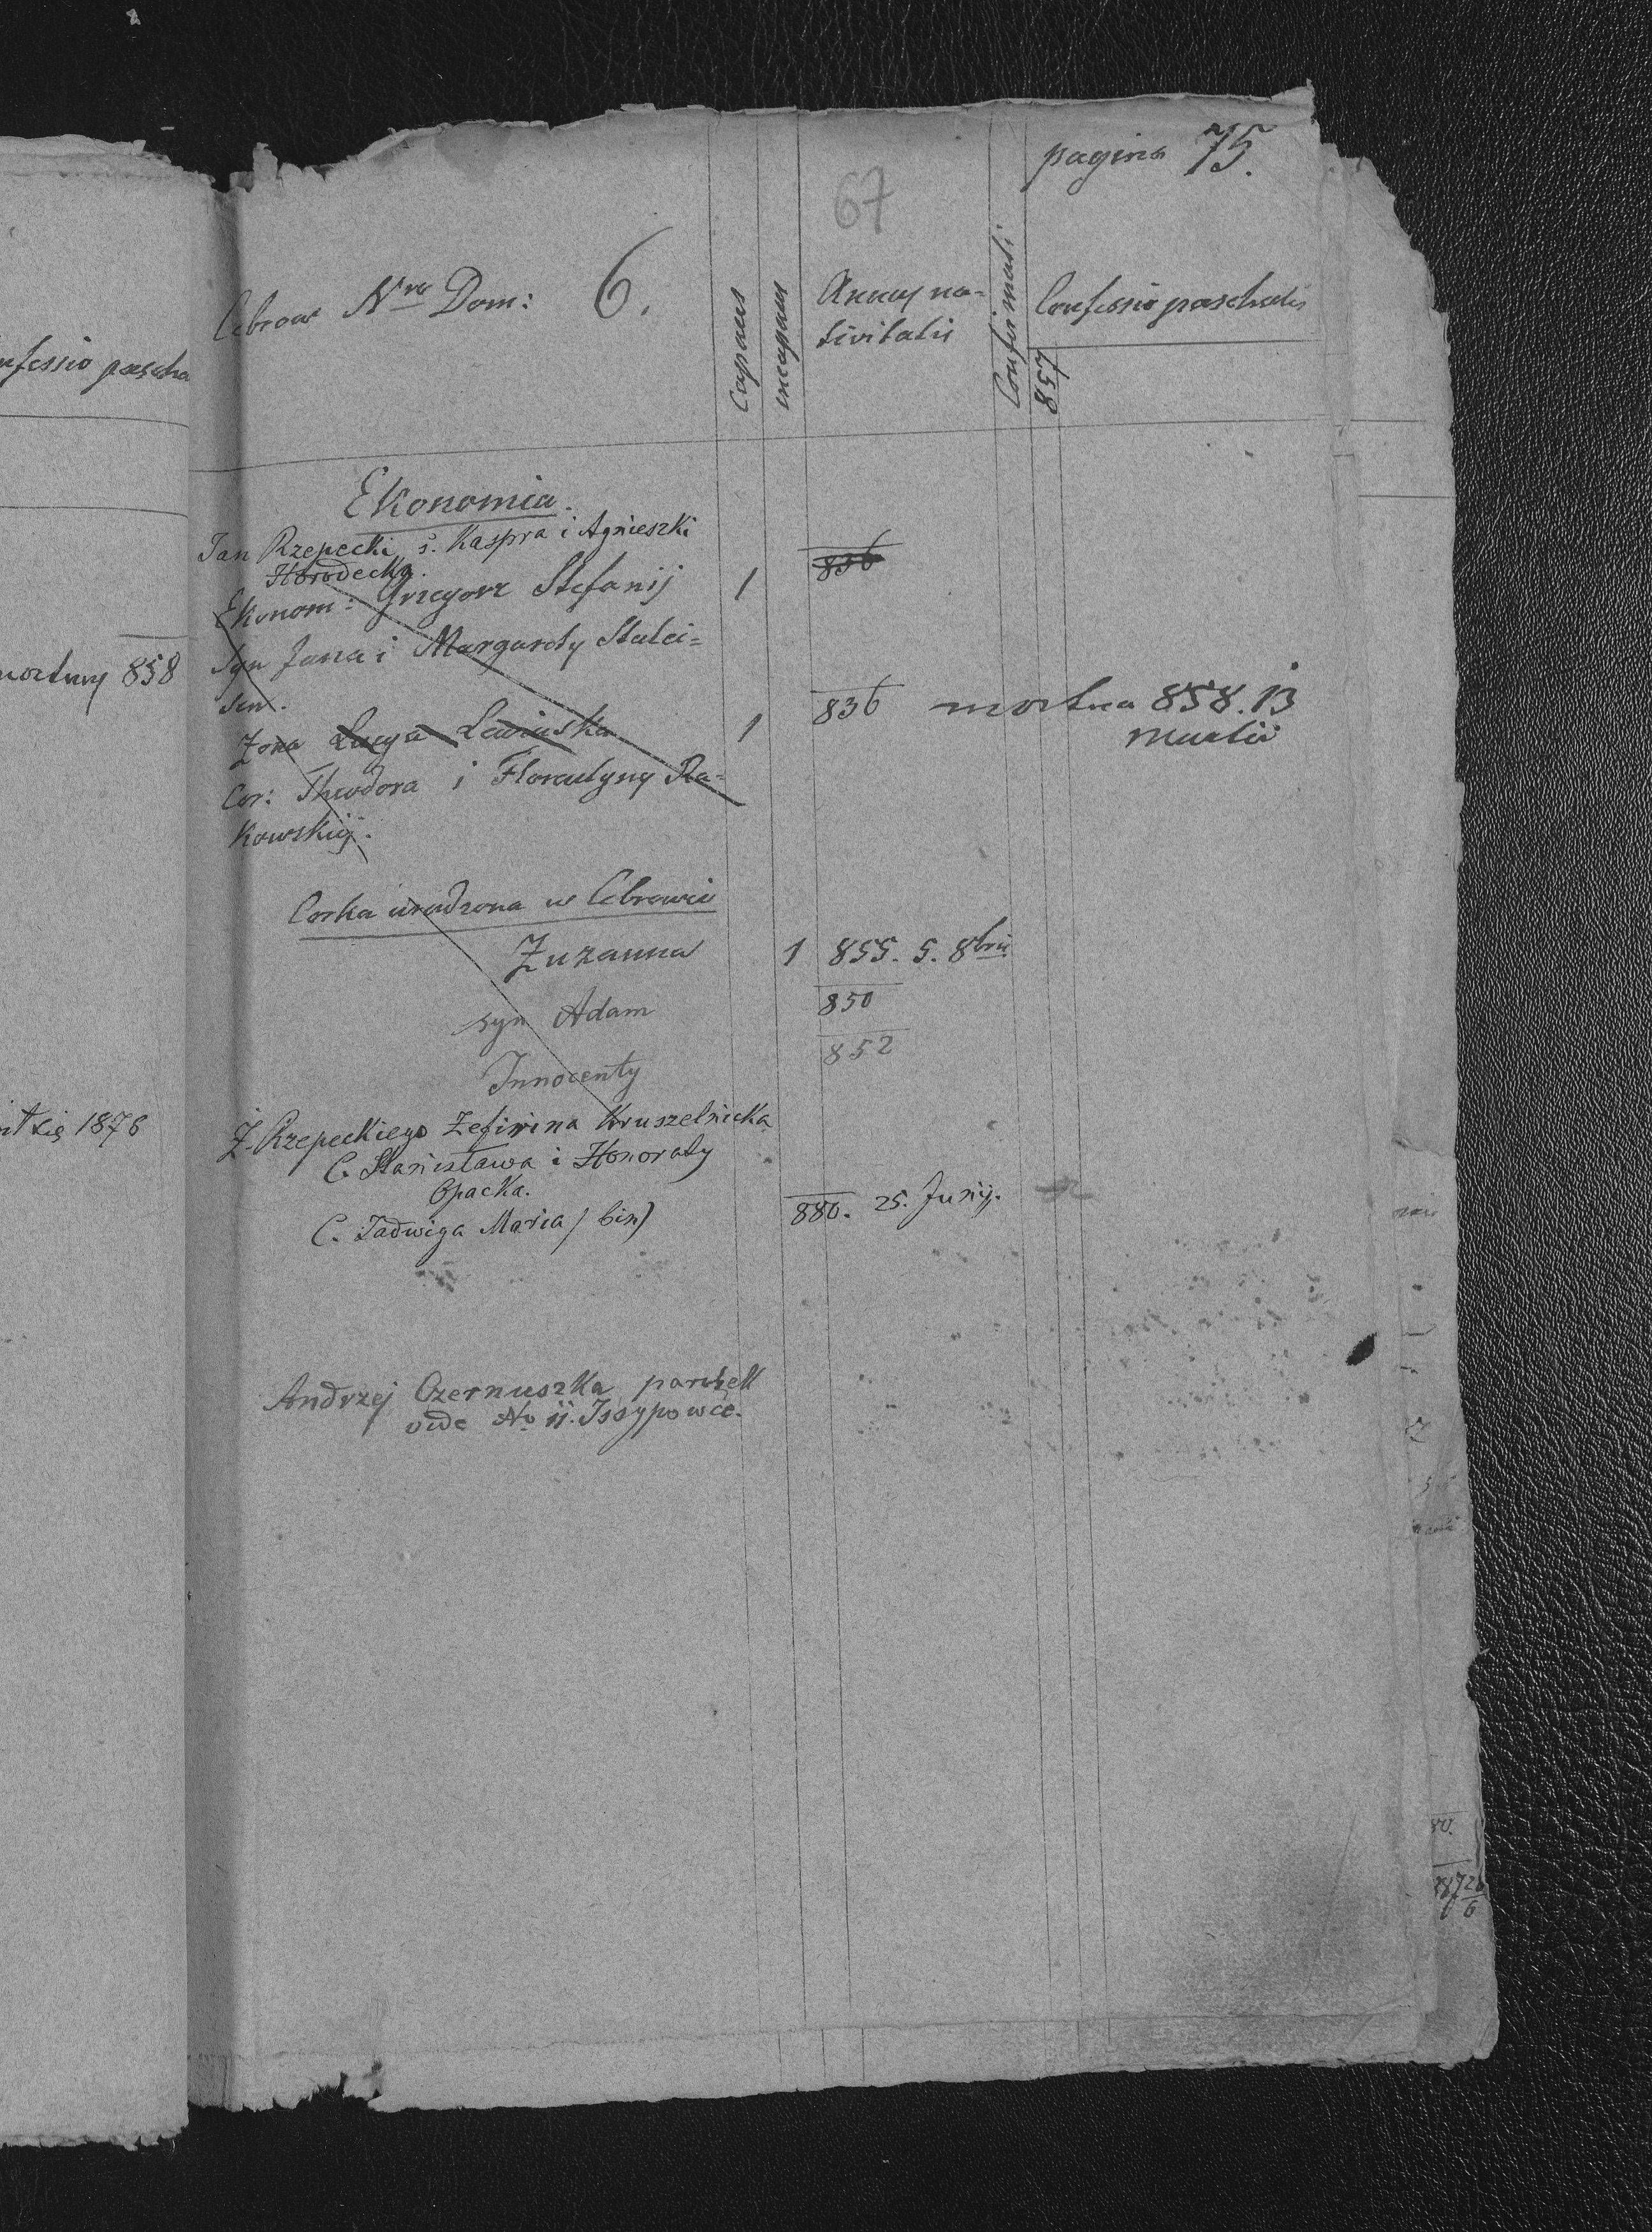 pagina 75.
67
Cebrow Nro Dom: 6.
Capaces
incapaces
Annus na-
tivitatis
Confirmati
Confessio paschalis
857
nfessio pascha
Ekonomia.
Jan Rzepecki s. Kaspra i Agnieszki
Horodecka.
836
Ekonom: Grzegorz Stefanij 1
Syn Jana i Margarety
mortuus 858
Zona Lucya Lewinska 1 836 mortua 858. 13
Martii
Cor: Theodora i Florentyny Ra-
kowskij.
Corka urodzona w Cebrowie
Zuzanna 1 855. 5. 8bris
syn Adam 850
Innocenty 852
1876
Ż. Rzepeckiego Zefirina Kruszelnicka
C. Stanisława i Honoraty
Opacka.
C. Jadwiga Maria / bin) 880. 25. Junij.
Andrzej Czernuszka parobek
vide No 11. Issypowce.